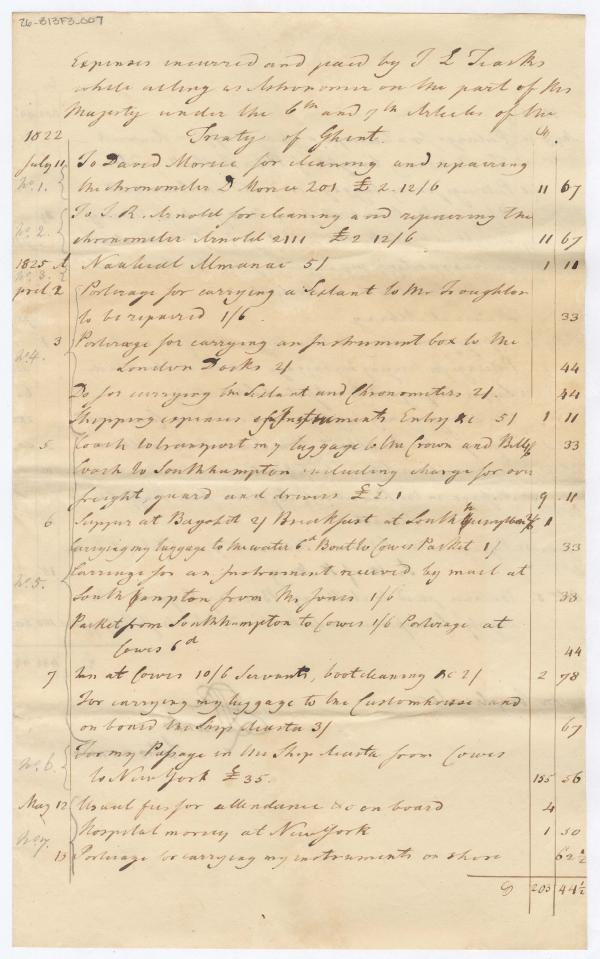 26-813F3-007
Expenses incurred and paid by J L Tiarks
while acting as Astronomer on the part of His
Majesty under the 6th and 7th Articles of the
1822 Treaty of Ghent.
July 11 To David Morice for cleaning and repairing
No. 1. the chronometer D Morice 201 £ 2.12/6 11 67
To J. R. Arnold for cleaning and repairing the
No. 2. chronometer Arnold 2111 £2 12/6 11 67
1825 A Nautical Almanac 5/ 1 11
No. 3.
pril 2 Porterage for carrying a Sextant to Mr Troughton
to be repaired 1/6. 33
3 Porterage for carrying an Instrument box to the
No. 4. London Docks 2/ 44
Do for carrying the Sextant and Chronometers 2/. 44
Shipping expenses of Instruments Entry &c 5/ 1 11
5 Coach to transport my luggage to the Crown and Bell 33
Coach to Southhampton including charge for over
freight, guard and drivers £ 2.1 9 11
6 Supper at Bagshot 2/ Breakfast at Southhampton 1
Carrying my luggage to the water 6d Boat to Cowes Packet 1/ 33
Carriage for an Instrument received by mail at
No. 5. Southhampton from Mr Jones 1/6 33
Packet from Southhampton to Cowes 1/6 Porterage at
Cowes 6d 44
7 Inn at Cowes 10/6 Servants, bootcleaning &c 2/ 2 78
For carrying my luggage to the Customhouse and
on board the Ship 3/ 67
For my Passage in the Ship from Cowes
No. 6. to New York £35. 155 56
May 12 Usual fees for attendance &c on board 4
Hospital money at New York 1 50
No. 7.
13 Porterage for carrying my instruments on shore 62½
203 44½